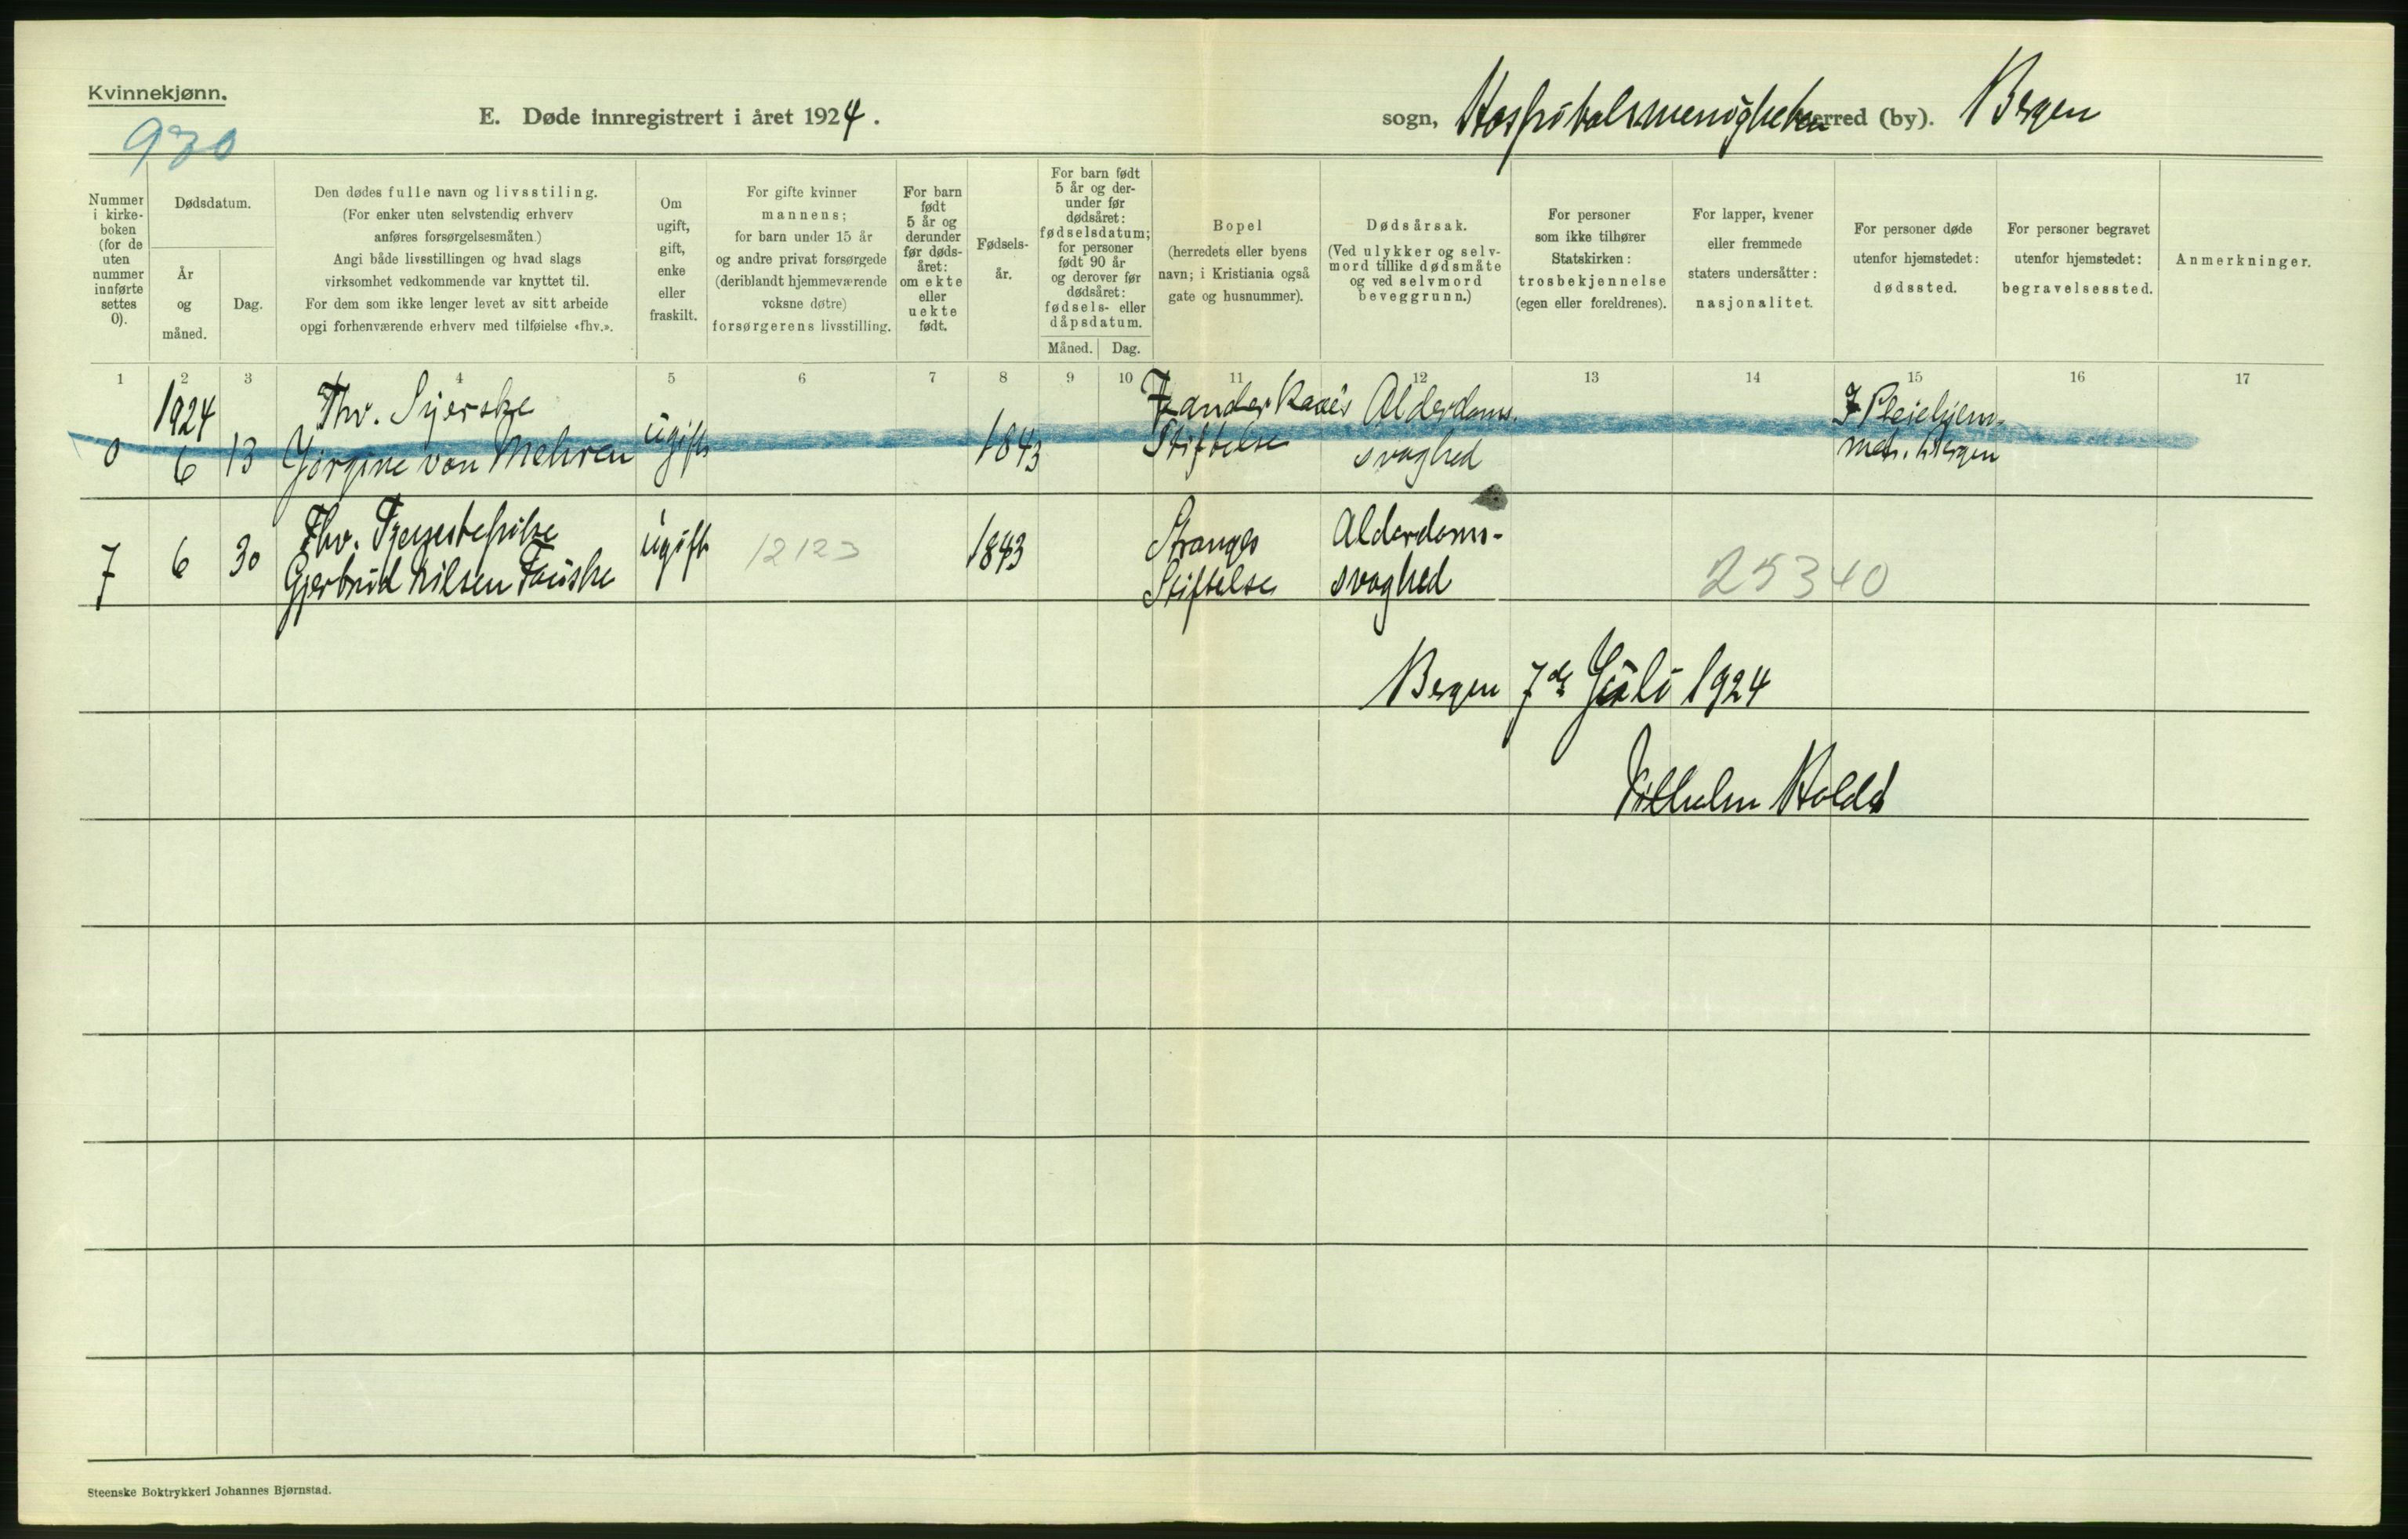 Kvinnekjønn.
930
E. Døde innregistrert i året 1924.
sogn, Hospitalsmenigheten herred (by). Bergen
Nummer
i kirke-
boken
(for de
uten
nummer
innførte
settes
0).
Dødsdatum.
År
og
måned.
Dag.
Den dødes fulle navn og livsstiling.
(For enker uten selvstendig erhverv
anføres forsørgelsesmåten.)
Angi både livsstillingen og hvad slags
virksomhet vedkommende var knyttet til.
For dem som ikke lenger levet av sitt arbeide
opgi forhenværende erhverv med tilføielse «fhv.».
Om
ugift,
gift,
enke
eller
fraskilt.
For gifte kvinner
mannens;
for barn under 15 år
og andre privat forsørgede
(deriblandt hjemmeværende
voksne døtre)
forsørgerens livsstilling.
For barn
født
5 år og
derunder
før døds-
året:
om ekte
eller
uekte
født.
Fødsels-
år.
For barn født
5 år og der-
under før
dødsåret:
fødselsdatum;
for personer
født 90 år
og derover før
dødsåret:
fødsels- eller
dåpsdatum.
Måned. Dag.
Bopel
(herredets eller byens
navn; i Kristiania også
gate og husnummer).
Dødsårsak.
(Ved ulykker og selv-
mord tillike dødsmåte
og ved selvmord
beveggrunn.)
For personer
som ikke tilhører
Statskirken:
trosbekjennelse
(egen eller foreldrenes).
For lapper, kvener
eller fremmede
staters undersåtter:
nasjonalitet.
For personer døde
utenfor hjemstedet:
dødssted.
For personer begravet
utenfor hjemstedet:
begravelsessted.
Anmerkninger.
1 2 3 4 5 6 7 8 9 10 11 12 13 14 15 16 17
1924 Fhv. Syerske Zander Kaaes Alderdoms. I Pleiehjem-
0 6 13 Jørgine von Mehren ugift 1843 Stiftelse svaghed met. Bergen
Fhv. Tjenestepike Stranges Alderdoms-
7 6 30 Gjertrud Nilsen Fauske ugift 12123 1843 Stiftelse svaghed 25340
Bergen 7de Juli 1924
Vilhelm Koldt
Steenske Boktrykkeri Johannes Bjørnstad.